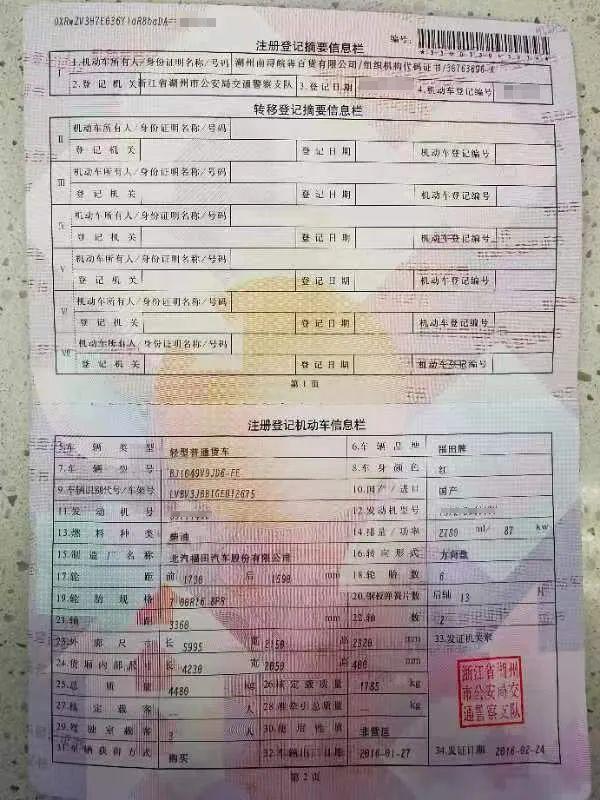 注册登记摘要信息栏
编号:
I
1.机动车所有人/身份证明名称/号码 湖州南浔皖海百货有限公司/组织机构代码证书/
2.登记机关 浙江省湖州市公安局交通警察支队 3.登记日期 4.机动车登记编号
转移登记摘要信息栏
II 机动车所有人/身份证明名称/号码
登记机关 登记日期 机动车登记编号
III 机动车所有人/身份证明名称/号码
登记机关 登记日期 机动车登记编号
IV 机动车所有人/身份证明名称/号码
登记机关 登记日期 机动车登记编号
V 机动车所有人/身份证明名称/号码
登记机关 登记日期 机动车登记编号
VI 机动车所有人/身份证明名称/号码
登记机关 登记日期 机动车登记编号
VII 机动车所有人/身份证明名称/号码
登记机关 登记日期 机动车登记编号
第1页
注册登记机动车信息栏
5.车辆类型 轻型普通货车 6.车辆品牌 福田牌
7.车辆型号 BJ1049V9JD6-FE 8.车身颜色 红
9.车辆识别代号/车架号 10.国产/进口 国产
11.发动机号 12.发动机型号
13.燃料种类 柴油 14.排量/功率 2780 ml/ 87 kw
15.制造厂名称 北汽福田汽车股份有限公司 16.转向形式 方向盘
17.轮距 前 1730 后 1590 mm 18.轮胎数 6
19.轮胎规格 7.00R16 8PR 20.钢板弹簧片数 后轴 13 片
21.轴距 3360 mm 22.轴数 2 33.发证机关章
23.外廓尺寸 长 5995 宽 2150 高 2320 mm
24.货厢内部尺寸 长 4230 宽 2050 高 400 mm
25.总质量 4480 kg 26.核定载质量 1785 kg
27.核定载客 — 人 28.准牵引总质量 — kg
29.驾驶室载客 3 人 30.使用性质 非营运
31.车辆获得方式 购买 32.车辆出厂日期 2016-01-27 34.发证日期 2016-02-24
浙江省湖州
市公安局交
通警察支队
第2页